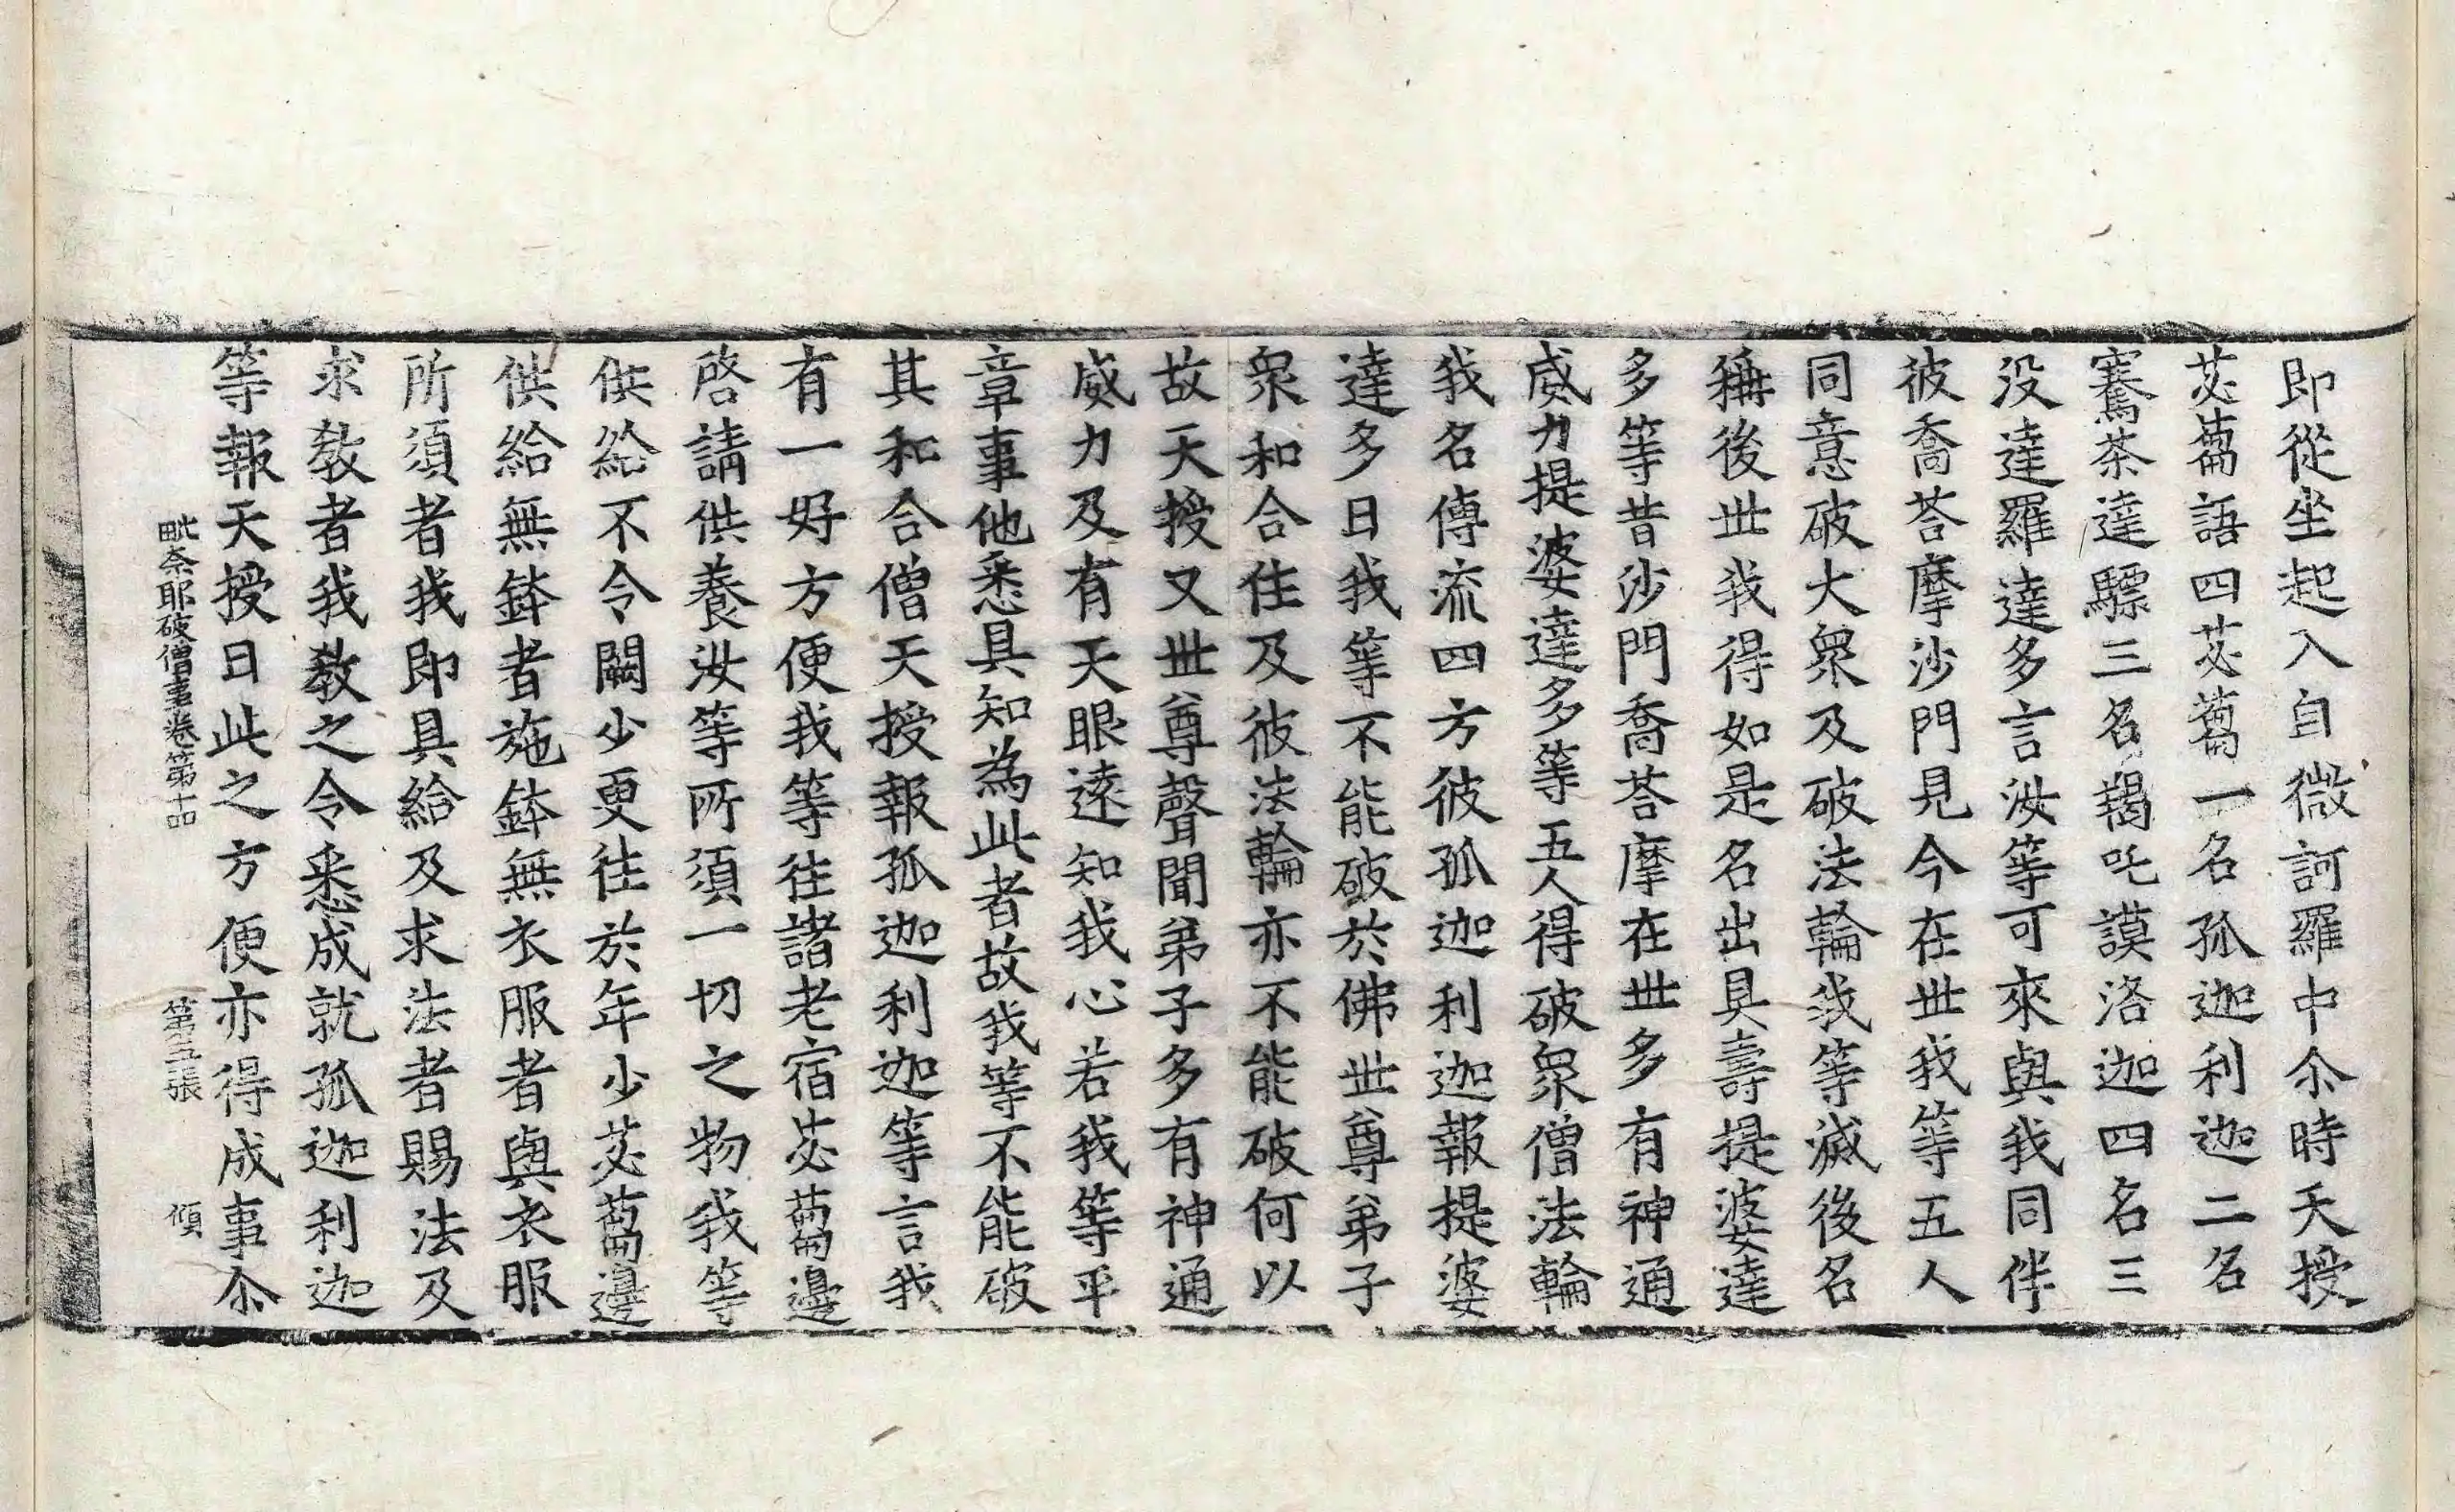 即從坐起入自微訶羅中尒時天授
苾蒭語四苾蒭一名孤迦利迦二名
騫荼達驃三名羯吒謨洛迦四名三
没達羅達多言汝等可來與我同伴
彼喬荅摩沙門見今在世我等五人
同意破大衆及破法輪我等滅後名
稱後世我得如是名出具壽提婆達
多等昔沙門喬荅摩在世多有神通
威力提婆達多等五人得破衆僧法輪
我名傳流四方彼孤迦利迦報提婆
達多曰我等不能破於佛世尊弟子
衆和合住及彼法輪亦不能破何以
故天授又世尊聲聞弟子多有神通
威力及有天眼遠知我心若我等平
章事他悉具知為此者故我等不能破
其和合僧天授報孤迦利迦等言我
有一好方便我等往諸老宿苾蒭邊
啓請供養汝等所須一切之物我等
供給不令闕少更往於年少苾蒭邊
供給無鉢者施鉢無衣服者與衣服
所須者我即具給及求法者賜法及
求教者我教之令悉成就孤迦利迦
等報天授曰此之方便亦得成事尒
毗奈耶破僧事卷第十品 第五張 傾